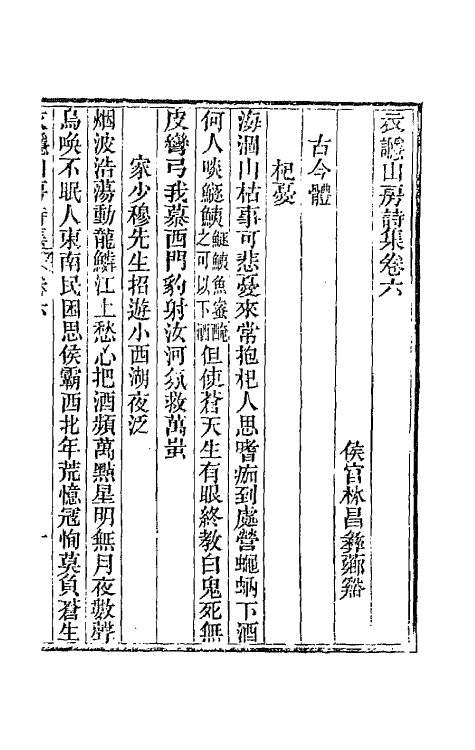 衣讔山房詩集卷六
侯官林昌彝薌谿
古今體
杞憂
海涸山枯事可悲憂來常抱杞人思嗜痂到處營蠅蚋下酒
何人啖鱁鮧鱁鮧魚蜜醃之可以下酒但使蒼天生有眼終教白鬼死無
皮彎弓我慕西門豹射汝河氛救萬蚩
家少穆先生招遊小西湖夜泛
烟波浩蕩動龍鱗江上愁心把酒頻萬點星明無月夜數聲
烏喚不眠人東南民困思侯霸西北年荒憶冦恂莫負蒼生
衣讔山房詩集 卷六 一